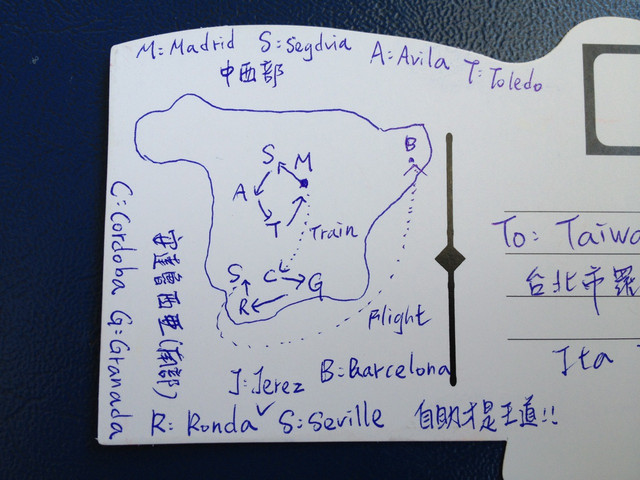 M: Madrid S: Segdvia A: Avila T: Toledo
中西部
B
S M
A
T
Train
S C G
R
Flight
C: Cordoba G: Granada
安達魯西亞(南部)
J: Jerez B: Barcelona
R: Ronda ✓ S: Seville 自助才是王道!!
To: Taiwa
台北市羅
Ita